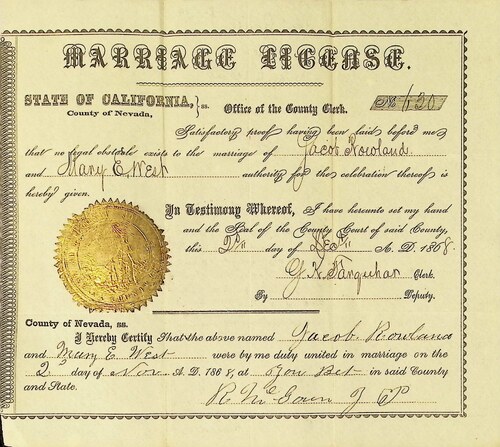 MARRIAGE LICENSE.
STATE OF CALIFORNIA, } ss. Office of the County Clerk. No 430
County of Nevada,
Satisfactory proof having been laid before me
that no legal obstacle exists to the marriage of Jacob Rowland
and Mary E. West authority for the celebration thereof is
hereby given.
In Testimony Whereof, I have hereunto set my hand
and the Seal of the County Court of said County,
this day of A. D. 1868.
G. K. Farquhar Clerk.
By Deputy.
County of Nevada, ss.
I Hereby Certify That the above named Jacob Rowland
and Mary E West were by me duly united in marriage on the
2 day of Nov A. D. 1868, at You Bet in said County
and State.
R McGown J P